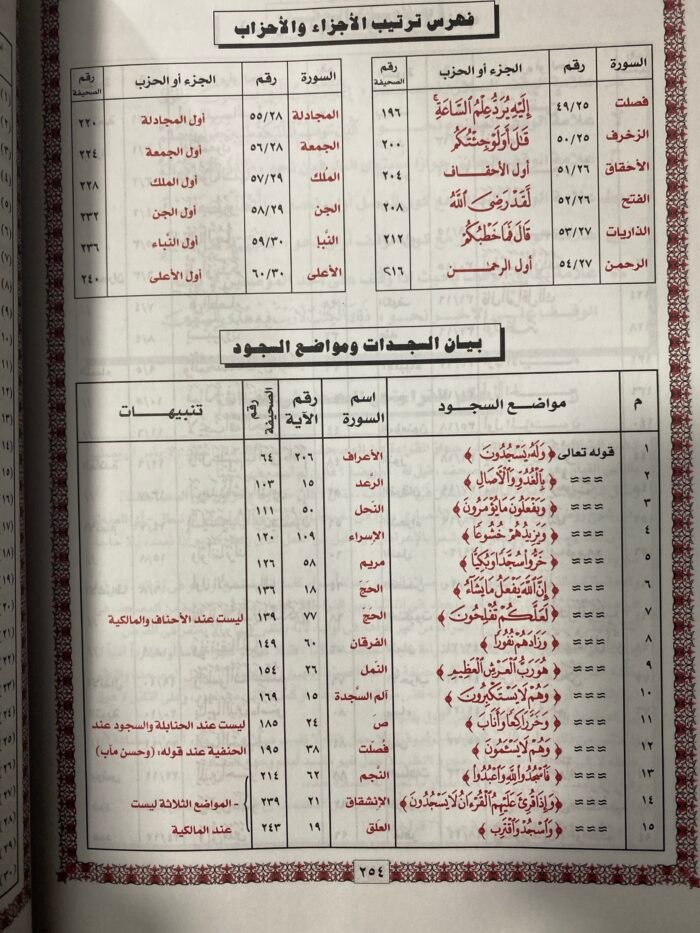 فهرس ترتيب الأجزاء والأحزاب
السورة رقم الجزء أو الحزب رقم الصحيفة
فصلت ٤٩/٢٥ إِلَيْهِ يُرَدُّ عِلْمُ السَّاعَةِ ١٩٦
الزخرف ٥٠/٢٥ قَالَ أَوَلَوْ جِئْتُكُمْ ٢٠٠
الأحقاق ٥١/٢٦ أول الأحقاف ٢٠٤
الفتح ٥٢/٢٦ لَقَدْ رَضِيَ اللَّهُ ٢٠٨
الذاريات ٥٣/٢٧ قَالَ فَمَا خَطْبُكُمْ ٢١٢
الرحمن ٥٤/٢٧ أول الرحمن ٢١٦
السورة رقم الجزء أو الحزب رقم الصحيفة
المجادلة ٥٥/٢٨ أول المجادلة ٢٢٠
الجمعة ٥٦/٢٨ أول الجمعة ٢٢٤
المُلك ٥٧/٢٩ أول الملك ٢٢٨
الجن ٥٨/٢٩ أول الجن ٢٣٢
النَّبإ ٥٩/٣٠ أول النَّباء ٢٣٦
الأعلى ٦٠/٣٠ أول الأعلى ٢٤٠
بيان السجدات ومواضع السجود
م مواضع السجود اسم السورة رقم الآية رقم الصحيفة تنبيهات
١ قوله تعالى ﴿ وَلَهُ يَسْجُدُونَ ﴾ الأعراف ٢٠٦ ٦٤
٢ === ﴿ بِالْغُدُوِّ وَالْآصَالِ ﴾ الرّعد ١٥ ١٠٣
٣ === ﴿ وَيَفْعَلُونَ مَا يُؤْمَرُونَ ﴾ النحل ٥٠ ١١١
٤ === ﴿ وَيَزِيدُهُمْ خُشُوعًا ﴾ الإسراء ١٠٩ ١٢٠
٥ === ﴿ خَرُّوا سُجَّدًا وَبُكِيًّا ﴾ مريم ٥٨ ١٢٦
٦ === ﴿ إِنَّ اللَّهَ يَفْعَلُ مَا يَشَاءُ ﴾ الحَجّ ١٨ ١٣٦
٧ === ﴿ لَعَلَّكُمْ تُفْلِحُونَ ﴾ الحَجّ ٧٧ ١٣٩ ليست عند الأحناف والمالكية
٨ === ﴿ وَزَادَهُمْ نُفُورًا ﴾ الفرقان ٦٠ ١٤٩
٩ === ﴿ هُوَ رَبُّ الْعَرْشِ الْعَظِيمِ ﴾ النّمل ٢٦ ١٥٤
١٠ === ﴿ وَهُمْ لَا يَسْتَكْبِرُونَ ﴾ آلم السَّجدة ١٥ ١٦٩
١١ === ﴿ وَخَرَّ رَاكِعًا وَأَنَابَ ﴾ ص ٢٤ ١٨٥ ليست عند الحنابلة والسجود عند
١٢ === ﴿ وَهُمْ لَا يَسْئَمُونَ ﴾ فُصّلت ٣٨ ١٩٥ الحنفية عند قوله: (وحسن مآب)
١٣ === ﴿ فَاسْجُدُوا لِلَّهِ وَاعْبُدُوا ﴾ النَّجم ٦٢ ٢١٤
١٤ === ﴿ وَإِذَا قُرِئَ عَلَيْهِمُ الْقُرْءَانُ لَا يَسْجُدُونَ ﴾ الإنشقاق ٢١ ٢٣٩ - المواضع الثلاثة ليست
١٥ === ﴿ وَاسْجُدْ وَاقْتَرِب ﴾ العَلق ١٩ ٢٤٣ عند المالكية
٢٥٤